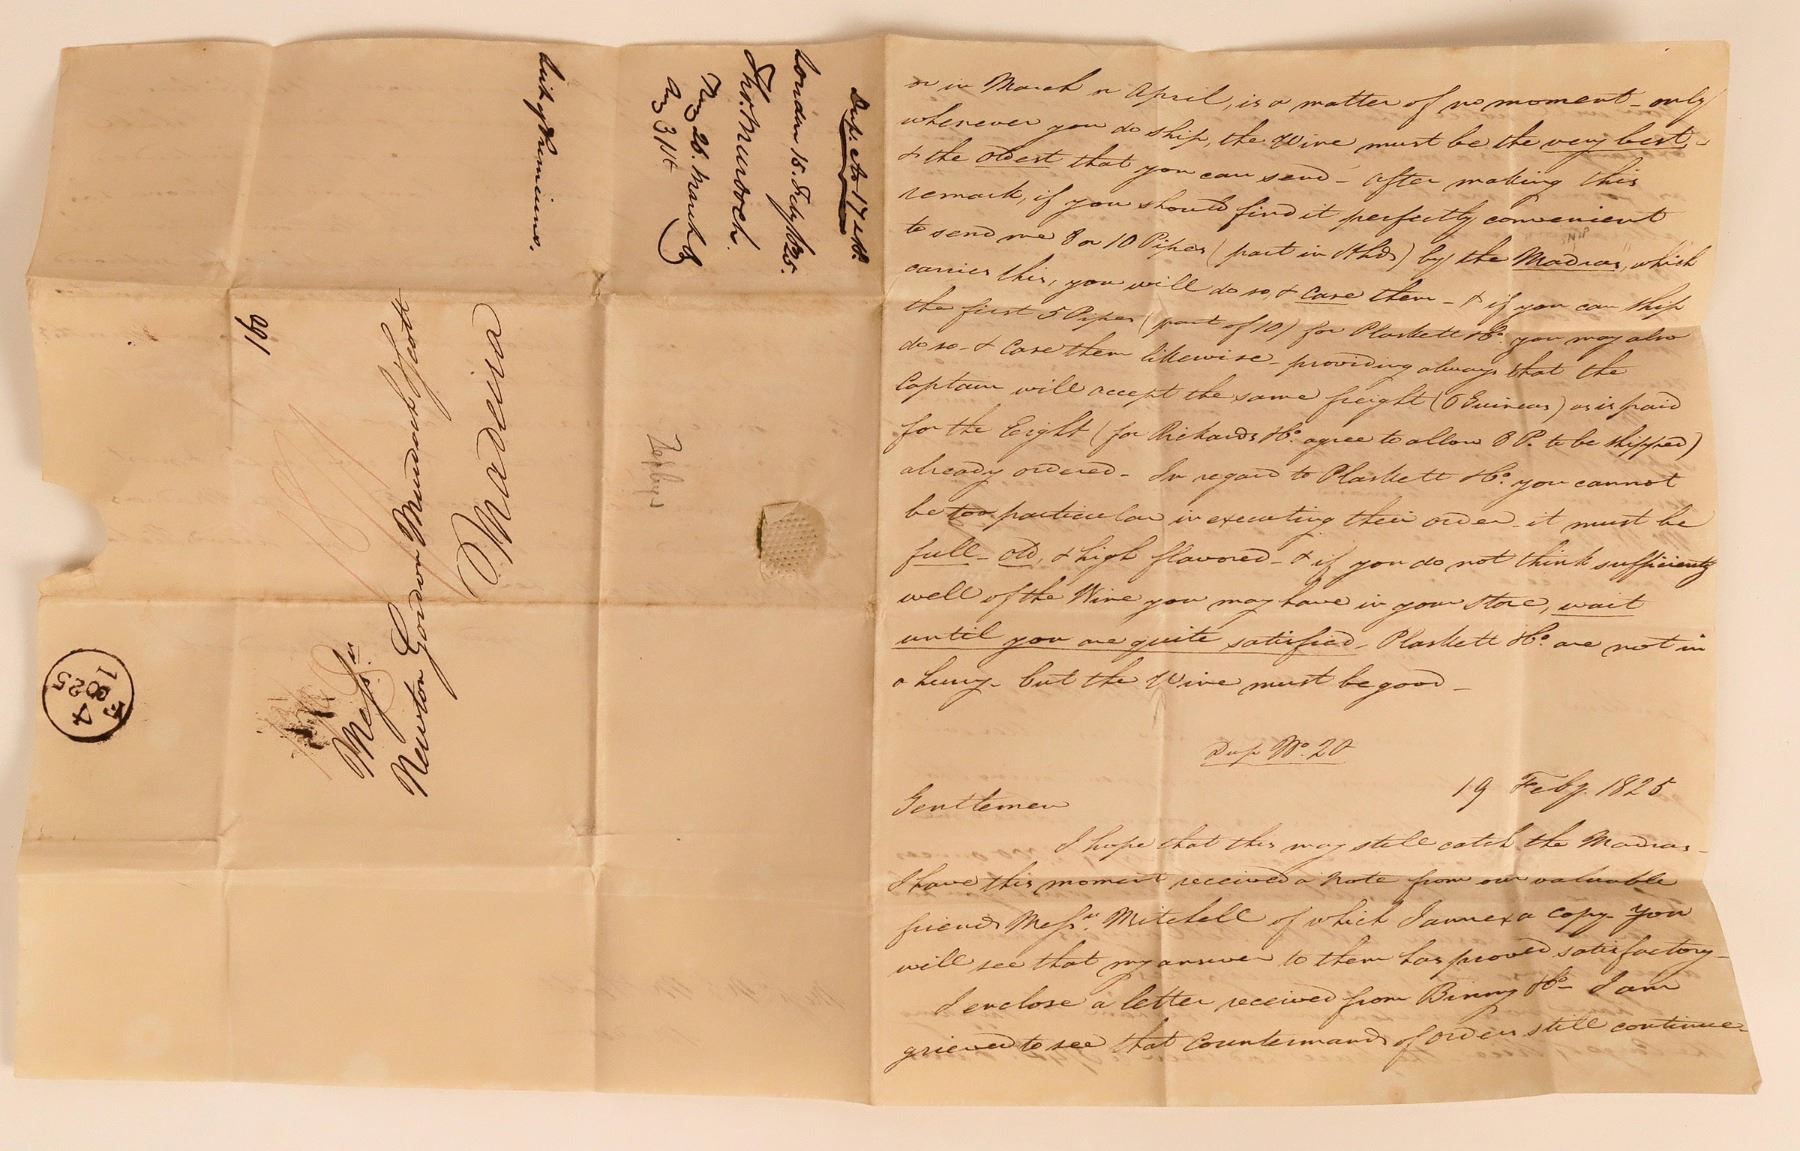 or in March or April, is a matter of no moment - only
whenever you do ship, the Wine must be the very best, -
& the oldest that you can send - After making this
remark, if you should find it perfectly convenient
to send me 8 or 10 Pipes (part in Hhds) by the Madras, which
carries this, you will do so, & case them - & if you can ship
the first 5 Pipes (part of 10) for Plaskett & Co. you may also
do so - & case them likewise - providing always that the
Captain will accept the same freight (6 Guineas) as is paid
for the Eight (for Rickards & Co. agree to allow 8 P. to be shipped)
already ordered - In regard to Plaskett & Co. you cannot
be too particular in executing their order - it must be
full - old, & high flavored - & if you do not think sufficiently
well of the Wine you may have in your Store, wait
until you are quite satisfied - Plaskett & Co. are not in
a hurry - but the Wine must be good -
Dup No. 20
19 Feby. 1825
Gentlemen
I hope that this may still catch the Madras -
I have this moment received a note from our valuable
friends Messrs. Mitchell of which I annex a copy - You
will see that my answer to them has proved satisfactory -
I enclose a letter received from Binny & Co - I am
grieved to see that Countermands of Orders still continue
Dup. No 17 & 18.
London 15. Feby 1825.
Thos. Murdoch.
Recd 26. March
Ans 31st
91
Messrs
Newton Gordon Murdoch & Scott
Madeira
F
4
1825